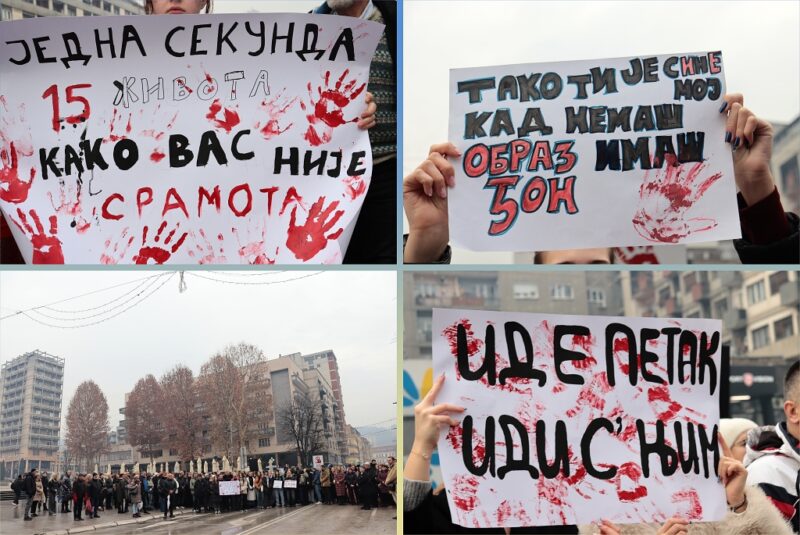 ЈЕДНА СЕКУНДА
15 ЖИВОТА
КАКО ВАС НИЈЕ
СРАМОТА
ТАКО ТИ ЈЕ СИНЕ
МОЈ
КАД НЕМАШ
ОБРАЗ ИМАШ
ЂОН
ИДЕ ПЕТАК
ИДИ С' ЊИМ